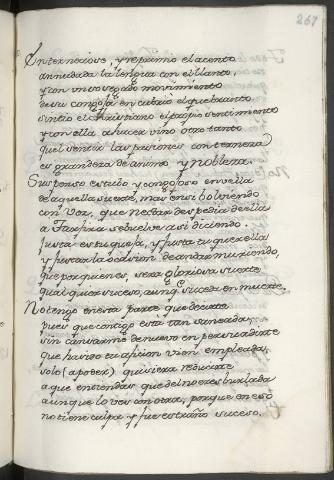 267
Enterneciose, y reprimio el acento
annudada la lengua con el llanto,
y con un sosegado movimiento
de su congoja encubrio el quebranto
sintio el Christiano el propio sentimiento
y con ella a hacer vino otro tanto
quel sentir las pasiones con terneza
es grandeza de animo y nobleza.
Suspenso estubo y congojoso en vella
de aquella suerte, mas en si bolviendo
con voz, que nectar despedia de ella
a Taxfira se buelve asi diciendo.
Justa es tu quexa, y justa tu querella
y justa la ocasion de andar muriendo,
que por quien es sera gloriosa suerte
qualquier suceso, aunq suceda en muerte.
No tengo en esta parte que decirte
pues que contigo esta tan saneada,
sin cansarme de nuevo en persuadirte
que ha sido tu aficion vien empleada,
solo (a poder) quisiera reducirte
a que entiendas que del no eres burlada
aunque lo ves con otra, porque en eso
no tiene culpa y fue estraño suceso.